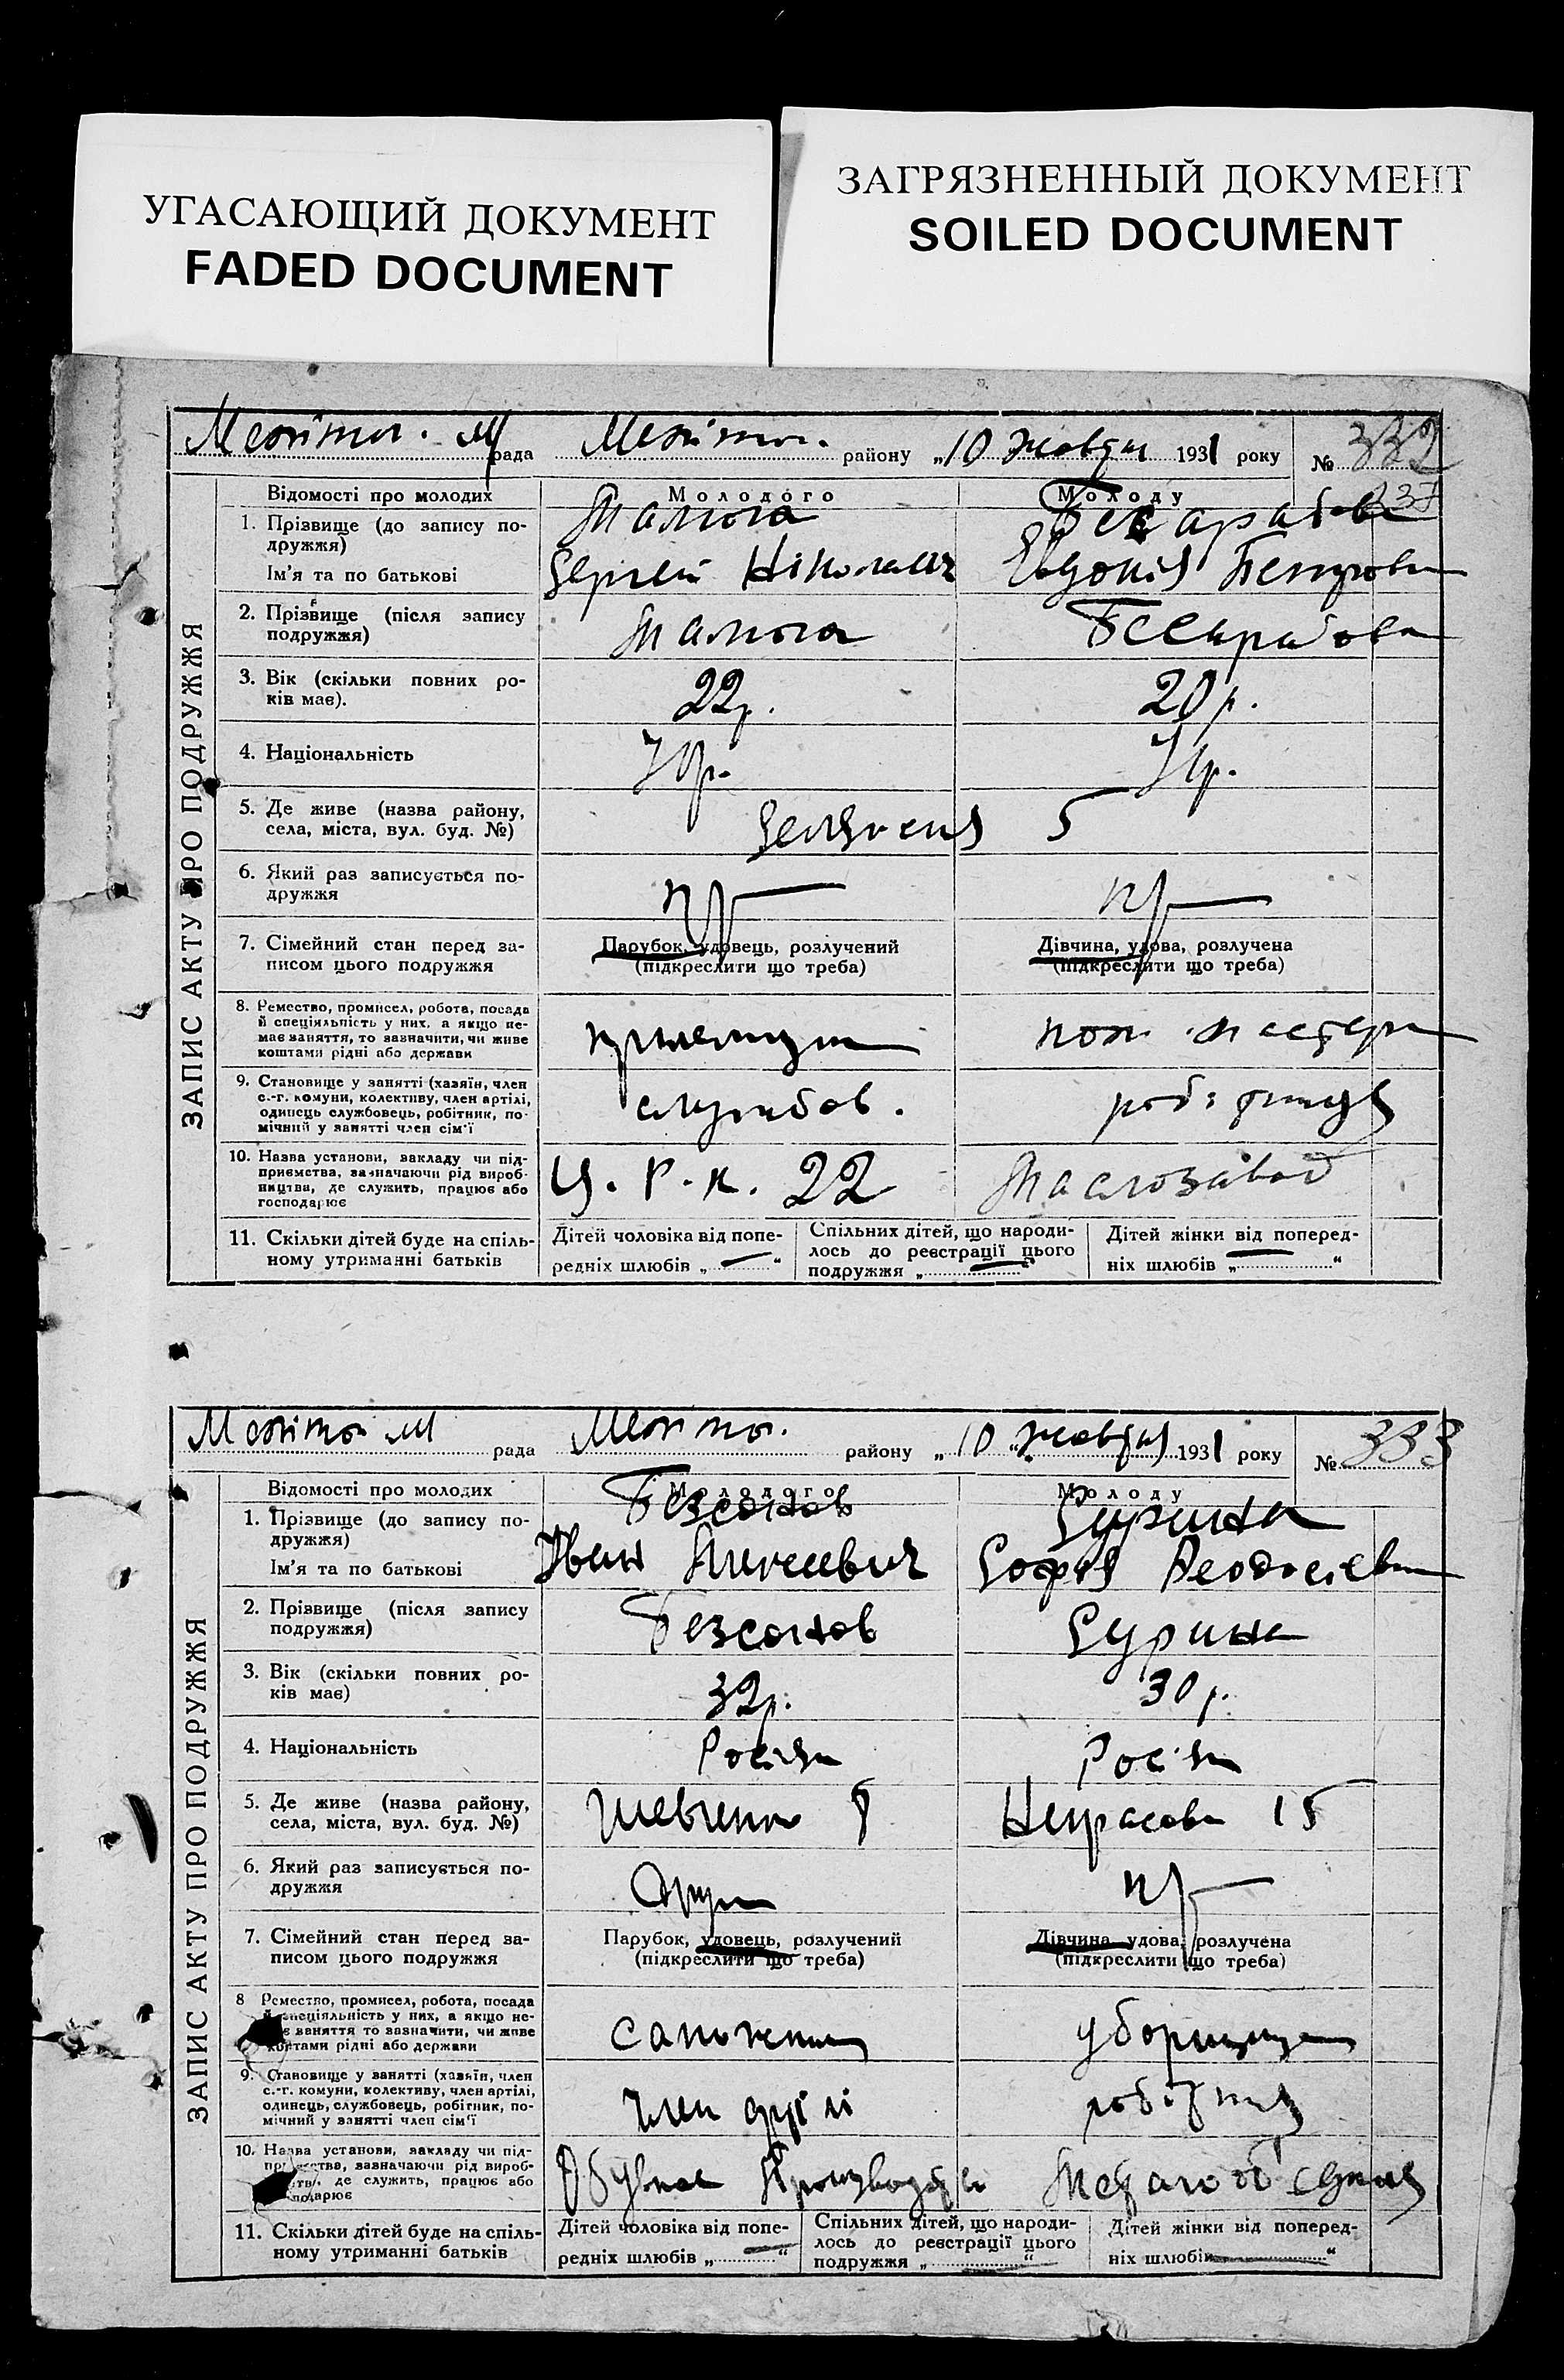 УГАСАЮЩИЙ ДОКУМЕНТ
FADED DOCUMENT
ЗАГРЯЗНЕННЫЙ ДОКУМЕНТ
SOILED DOCUMENT
Меліто. М рада Меліто. району „10 жовтня 1931 року № 332
337
ЗАПИС АКТУ ПРО ПОДРУЖЖЯ
Відомості про молодих Молодого Молоду
1. Прізвище (до запису по-
дружжя)
Ім'я та по батькові Сергей Ніколаев Евдокія Петровна
2. Прізвище (після запису
подружжя)
3. Вік (скільки повних ро-
ків має). 22р. 20р.
4. Національність Укр. Укр.
5. Де живе (назва району,
села, міста, вул. буд. №) 5
6. Який раз записується по-
дружжя пр пр
7. Сімейний стан перед за-
писом цього подружжя
Парубок, удовець, розлучений
(підкреслити що треба)
Дівчина, удова, розлучена
(підкреслити що треба)
8. Ремество, промисел, робота, посада
й спеціяльність у них, а якщо не-
має заняття, то зазначити, чи живе
коштами рідні або держави
9. Становище у занятті (хазяїн, член
с.-г. комуни, колективу, член артілі,
одинець службовець, робітник, по-
мічний у занятті член сім'ї службов. робітниця
10. Назва установи, закладу чи під-
приємства, зазначаючи рід вироб-
ництва, де служить, працює або
господарює Ц. Р. К. 22 Маслозавод
11. Скільки дітей буде на спіль-
ному утриманні батьків
Дітей чоловіка від попе-
редніх шлюбів „ — “
Спільних дітей, що народи-
лось до реєстрації цього
подружжя „ — “
Дітей жінки від поперед-
ніх шлюбів „ “
Меліто М рада Меліто. району „10“ жовтня 1931 року № 333
ЗАПИС АКТУ ПРО ПОДРУЖЖЯ
Відомості про молодих Молодого Молоду
1. Прізвище (до запису по-
дружжя) Безсонов Сурина
Ім'я та по батькові Іван Алексеевич Софія Феодосієвна
2. Прізвище (після запису
подружжя) Безсонов Сурина
3. Вік (скільки повних ро-
ків має) 32р. 30р.
4. Національність Росіян Росіян
5. Де живе (назва району,
села, міста, вул. буд. №) Шевченко Некрасова 15
6. Який раз записується по-
дружжя други пр
7. Сімейний стан перед за-
писом цього подружжя
Парубок, удовець, розлучений
(підкреслити що треба)
Дівчина удова, розлучена
(підкреслити що треба)
8 Ремество, промисел, робота, посада
й спеціяльність у них, а якщо не-
має заняття то зазначити, чи живе
коштами рідні або держави сапожник уборщица
9. Становище у занятті (хазяїн, член
с.-г. комуни, колективу, член артілі,
одинець, службовець, робітник, по-
мічний у занятті член сім'ї член артілі робітниця
10. Назва установи, закладу чи під-
приємства, зазначаючи рід вироб-
ництва, де служить, працює або
господарює
11. Скільки дітей буде на спіль-
ному утриманні батьків
Дітей чоловіка від попе-
редніх шлюбів „ “
Спільних дітей, що народи-
лось до реєстрації цього
подружжя „ “
Дітей жінки від поперед-
ніх шлюбів “